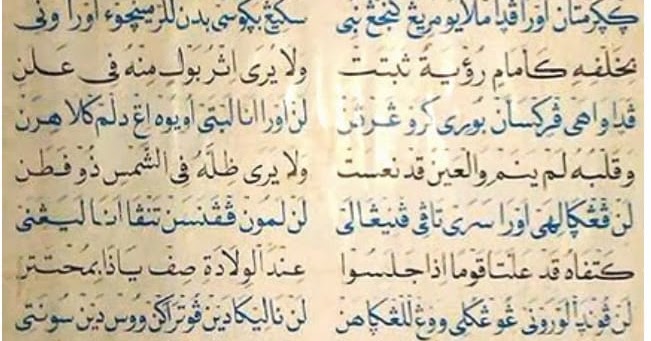 ككرمتان اورا ڤدا ملايو مريڠ كنجڠ نبي سكيڠ بڮوسى بدن للر منچوء اورا وني
بخلفه كامام رؤية ثبتت ولا يرى اثر بول منه في علن
ڤداواهى ڤركسان بوري كرو غرثن لن اورا انا لبتى اويوه اڠ دلم كلاهرن
وقلبه لم ينم والعين قد نعست ولا يرى ظله في الشمس ذو فطن
لن ڤڠڮالهى اورا سرى تاڤي ڤنيڠالى لن لمون ڤڤنسن تنڤا انا ليڠنى
كتفاه قد علتا قوما اذا جلسوا عند الولادة صف ياذا بمختتن
لن ڤوندأ لوروني ڠوڠكلي ووڠ للڠڮاهن لن ناليكا دين ڤوتراكن ووس دين سونتي